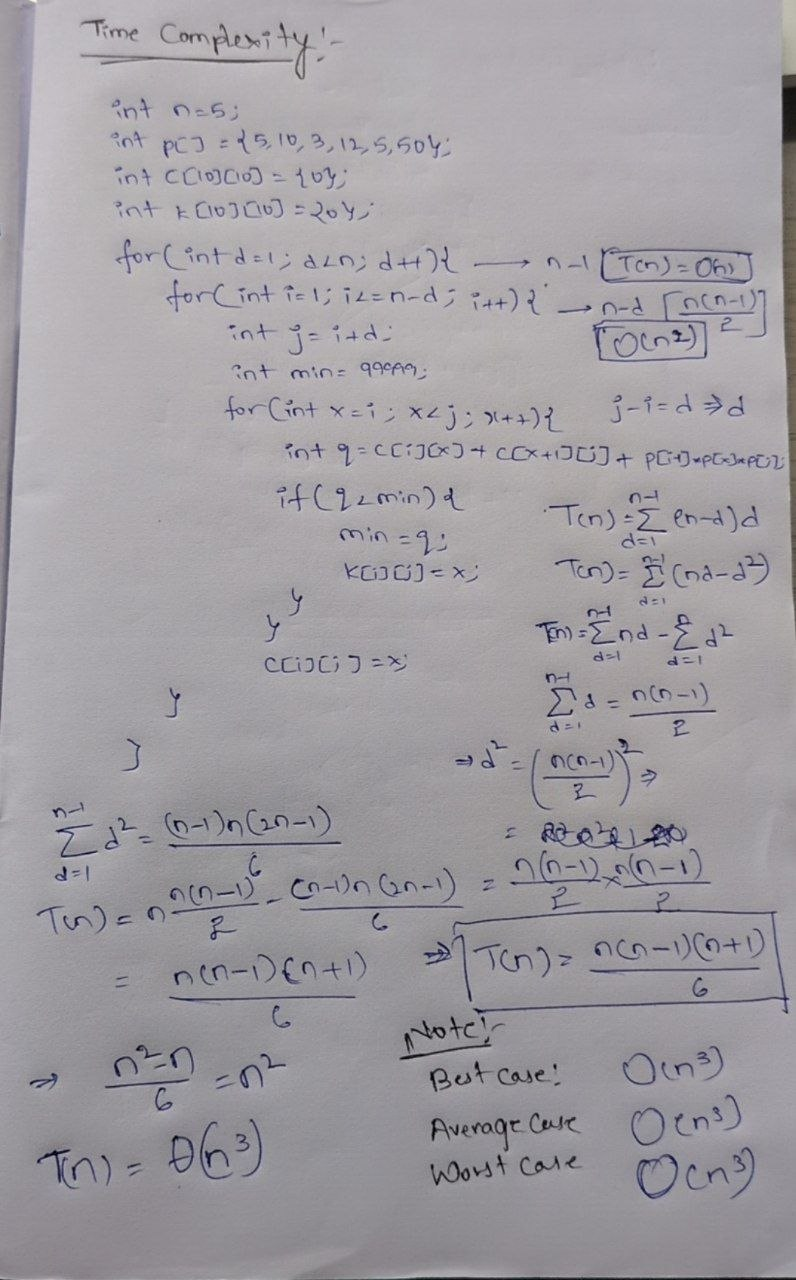 Time Complexity:-
int n=5;
int p[] = {5,10,3,12,5,50};
int c[10][10] = {0};
int k[10][10] = {0};
for(int d=1; d<n; d++){ → n-1 [T(n)=O(n)]
for(int i=1; i<=n-d; i++){ → n-d [n(n-1)/2]
[O(n²)]
int j=i+d;
int min= 99999;
for(int x=i; x<j; x++){ j-i=d ⇒ d
int q=c[i][x]+c[x+1][j]+p[i-1]*p[x]*p[j];
if(q<min){
min=q;
k[i][j]=x;
}
}
c[i][j]=x;
}
}
T(n)=∑_{d=1}^{n-1}(n-d)d
T(n)=∑_{d=1}^{n-1}(nd-d²)
T(n)=∑_{d=1}^{n-1}nd-∑_{d=1}^{n}d²
∑_{d=1}^{n-1}d=n(n-1)/2
⇒ d²=(n(n-1)/2)² ⇒
= n(n-1)/2 × n(n-1)/2
∑_{d=1}^{n-1}d²=(n-1)n(2n-1)/6
T(n)=n n(n-1)/2 - (n-1)n(2n-1)/6
= n(n-1)(n+1)/6
⇒ T(n)= n(n-1)(n+1)/6
⇒ n²-n/6 =n²
T(n)=θ(n³)
Note:-
Best case: O(n³)
Average Case O(n³)
Worst case O(n³)